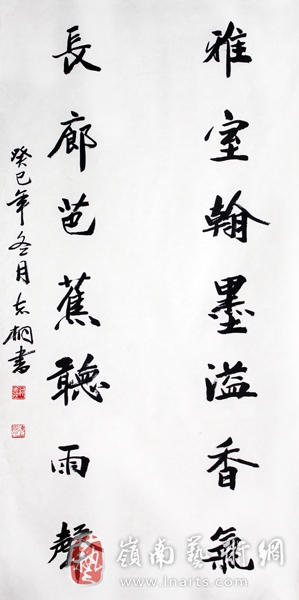 雅室翰墨溢香氣
長廊芭蕉聽雨聲
癸巳年冬月志桐書
嶺南藝術網
www.lnarts.com